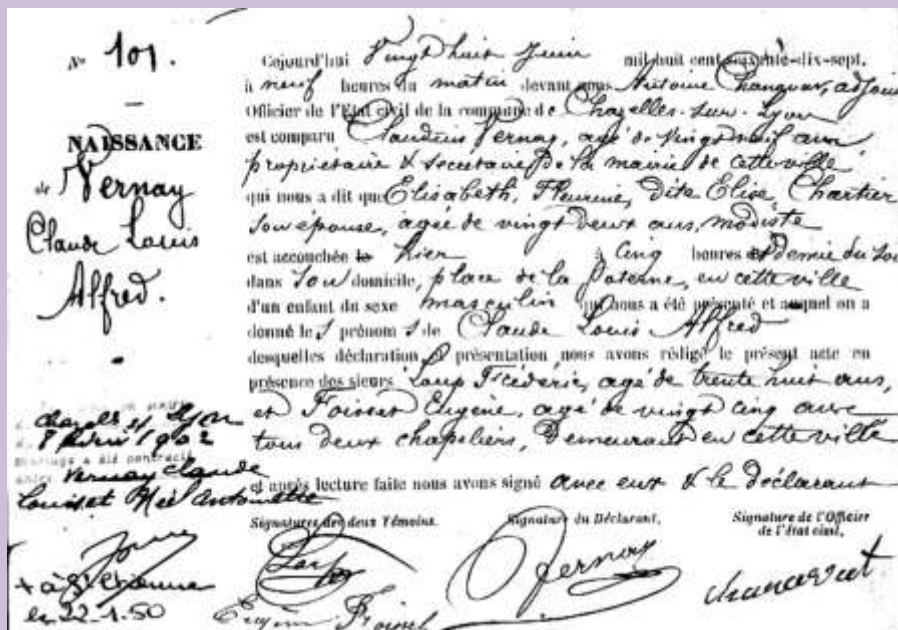 N° 101.
NAISSANCE
de Vernay
Claude Louis
Alfred.
Cejourd'hui Vingt huit Juin mil huit cent soixante-dix-sept,
à neuf heures du matin devant nous Antoine adjoint
Officier de l'Etat civil de la commune de Chazelles-sur-Lyon
est comparu Claudius Vernay, agé de vingt neuf ans
propriétaire & secrétaire de la mairie de cette ville
qui nous a dit que Elisabeth, Fleurine, dite Elise, Chartier
son épouse, agée de vingt deux ans, modiste
est accouchée le hier à cinq heures et demie du soir
dans son domicile, place de la Poterne, en cette ville
d'un enfant du sexe masculin qui nous a été présenté et auquel on a
donné les prénoms de Claude Louis Alfred
desquelles déclaration & présentation nous avons rédigé le présent acte en
présence des sieurs Loup Frédéric, agé de trente huit ans,
et Foisset Eugène, agé de vingt cinq ans
tous deux chapeliers, demeurant en cette ville
et après lecture faite nous avons signé avec eux & le déclarant
Signatures des deux Témoins.
Signature du Déclarant,
Signature de l'Officier
de l'état civil,
Vernay
Eugène
1902
mariage a été contracté
entre Vernay Claude
Louis et Antoinette
+ à St Etienne
le 22-1-50